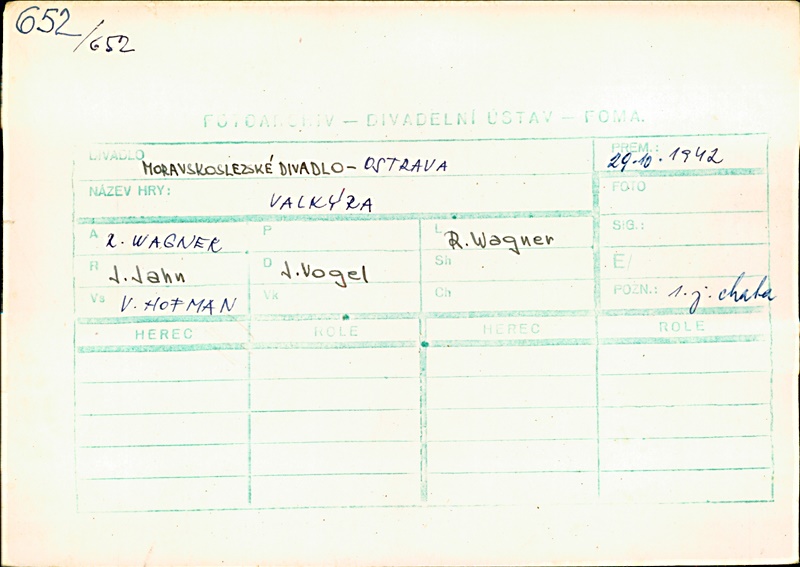 652/652
FOTOARCHIV — DIVADELNÍ ÚSTAV — FOMA.
DIVADLO MORAVSKOSLEZSKÉ DIVADLO - OSTRAVA
PREM.: 29.10.1942
NÁZEV HRY: VALKÝRA
FOTO
A R. WAGNER P L R. Wagner
SIG.:
R J. Jahn D J. Vogel Sh
Č/
Vs V. HOFMAN Vk Ch
POZN.: 1. j. chata
HEREC ROLE HEREC ROLE